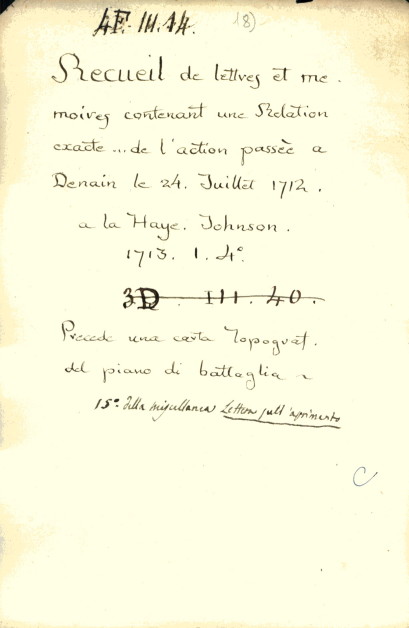 4F. III. 14. 18)
Recueil de lettres et me.
moires contenant une Relation
exacte ... de l'action passèe a
Denain le 24. Juillet 1712.
a la Haye. Johnson.
1713. 1. 4°.
3D III. 40.
Precede una carta Topograf.
del piano di battaglia
15° della miscellanea Lettera sull'aprimento
C